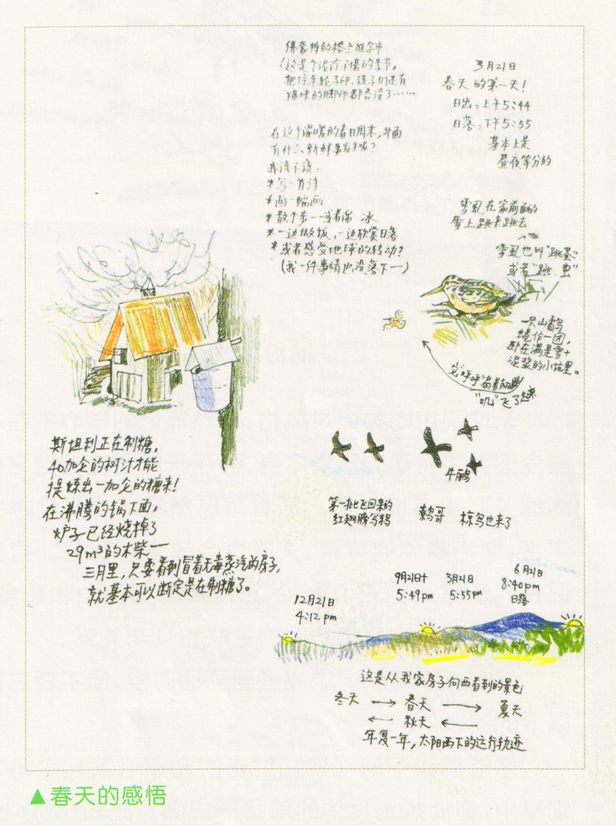 佛蒙特的格兰维尔市
(这是个泥泞不堪的季节。
把汽车轮子印、孩子们还有
猫咪的脚印都吞没了……
3月21日
春天的第一天!
日出:上午5:44
日落:下午5:55
基本上是
昼夜等分的
在这个温暖的春日周末,外面
有什么新鲜事发生呢?
我该不该:
*写一首诗
*画一幅画
*散个步——当看冰
*一边做饭,一边欣赏日落
*或者感受地球的转动?
(我一件事情也没落下——)
雪虱在家前面的
雪上跳来跳去
雪虱也叫“跳蚤”
或者“跳虫”
一只山鹬
蜷作一团,
卧在满是雪+
泥浆的小坑里。
“叽”飞了起来
斯坦利正在制糖,
40加仑的树汁才能
提炼出一加仑的糖来!
在沸腾的锅下面,
炉子已经烧掉了
29m³的木柴——
三月里,只要看到冒着无毒蒸汽的房子,
就基本可以断定是在制糖了。
牛鹂
第一批飞回来的
红翅膀乌鸫
鹩哥
椋鸟也来了
12月21日
4:12pm
9月21日+
5:49pm
3月21日
5:55pm
6月21日
8:40pm
日落
这是从我家房子向西看到的景色
冬天 → 春天 → 夏天
← 秋天 ←
年复一年,太阳西下的运行轨迹
▲春天的感悟